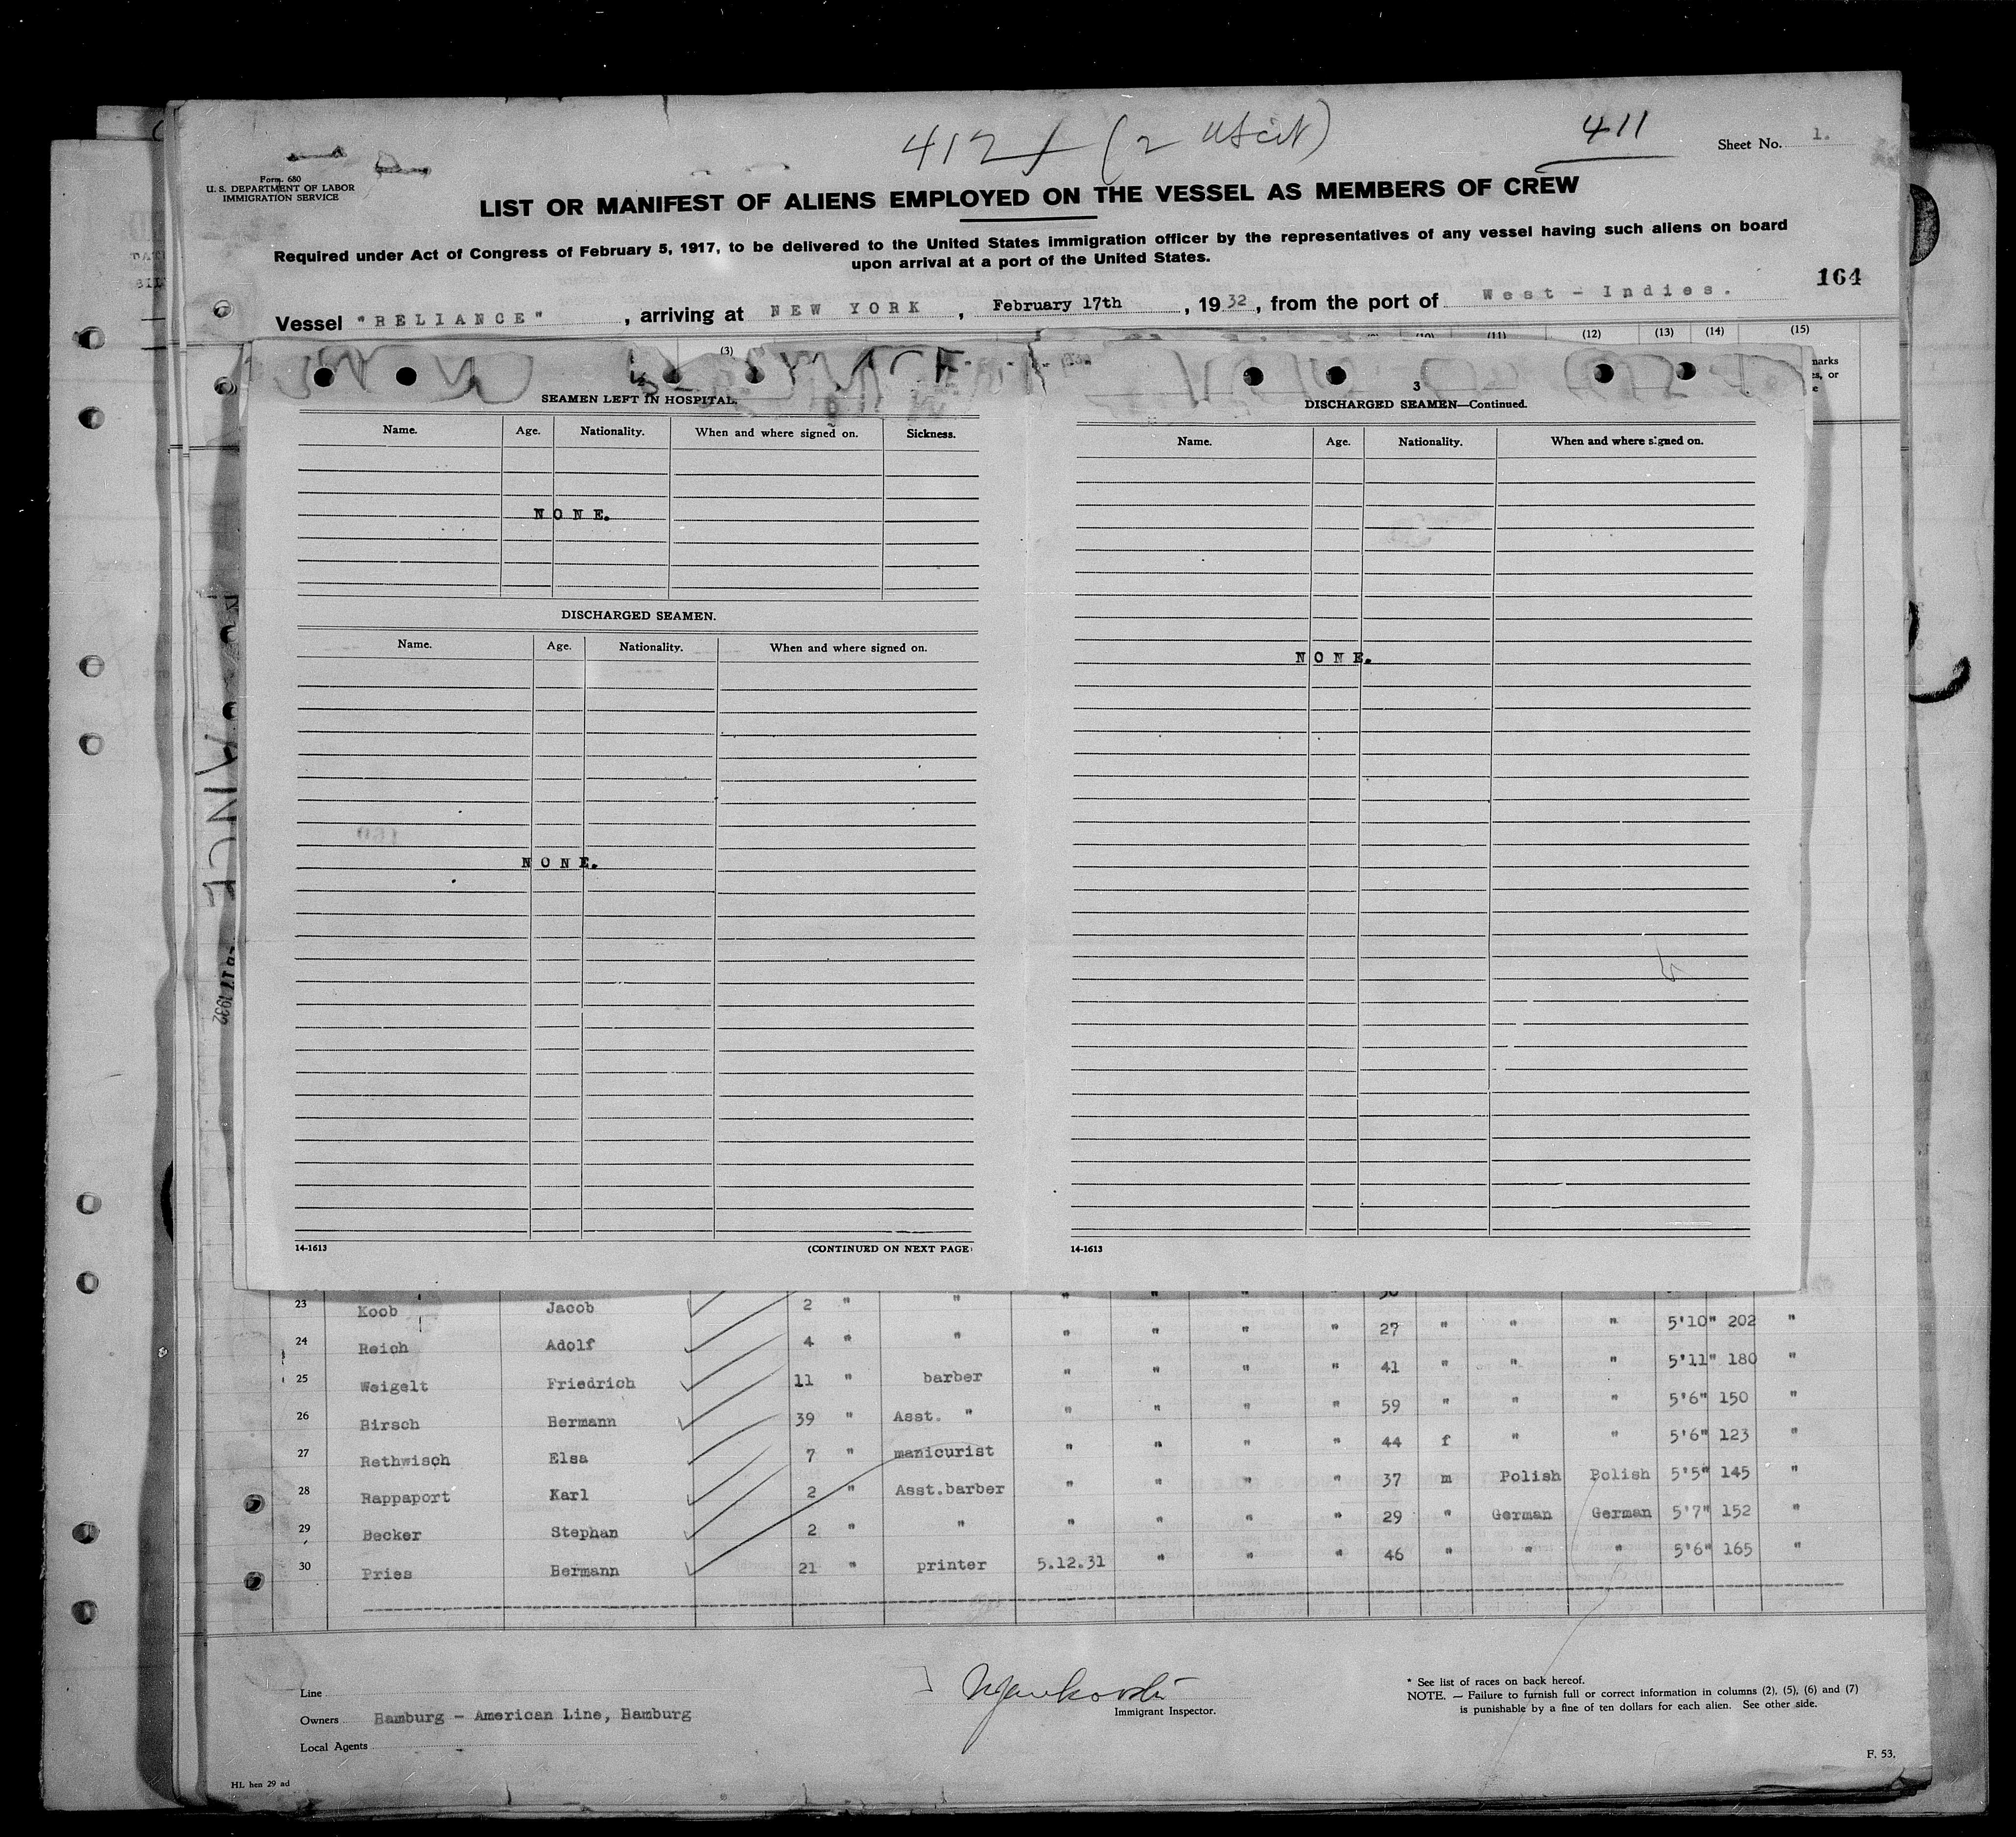 412 (2 USCit)
411
Sheet No. 1.
Form. 680
U. S. DEPARTMENT OF LABOR
IMMIGRATION SERVICE
LIST OR MANIFEST OF ALIENS EMPLOYED ON THE VESSEL AS MEMBERS OF CREW
Required under Act of Congress of February 5, 1917, to be delivered to the United States immigration officer by the representatives of any vessel having such aliens on board
upon arrival at a port of the United States.
164
Vessel "RELIANCE" , arriving at NEW YORK , February 17th , 1932, from the port of West - Indies.
(3) (10) (11) (12) (13) (14) (15)
SEAMEN LEFT IN HOSPITAL.
Name. Age. Nationality. When and where signed on. Sickness.
NONE.
DISCHARGED SEAMEN.
Name. Age. Nationality. When and where signed on.
NONE.
14-1613 (CONTINUED ON NEXT PAGE)
3
DISCHARGED SEAMEN—Continued.
Name. Age. Nationality. When and where signed on.
NONE.
14-1613
23 Koob Jacob 2 " " " " " "
24 Reich Adolf 4 " " " " " " 27 " " " 5'10" 202 "
25 Weigelt Friedrich 11 " barber " " " " 41 " " " 5'11" 180 "
26 Hirsch Hermann 39 " Asst. " " " " " 59 " " " 5'6" 150 "
27 Rethwisch Elsa 7 " manicurist " " " " 44 f " " 5'6" 123 "
28 Rappaport Karl 2 " Asst.barber " " " " 37 m Polish Polish 5'5" 145 "
29 Becker Stephan 2 " " " " " " 29 " German German 5'7" 152 "
30 Pries Hermann 21 " printer 5.12.31 " " " 46 " " " 5'6" 165 "
Line
Owners Hamburg - American Line, Hamburg
Local Agents
Immigrant Inspector.
* See list of races on back hereof.
NOTE. — Failure to furnish full or correct information in columns (2), (5), (6) and (7)
is punishable by a fine of ten dollars for each alien. See other side.
F. 53.
HL hen 29 ad